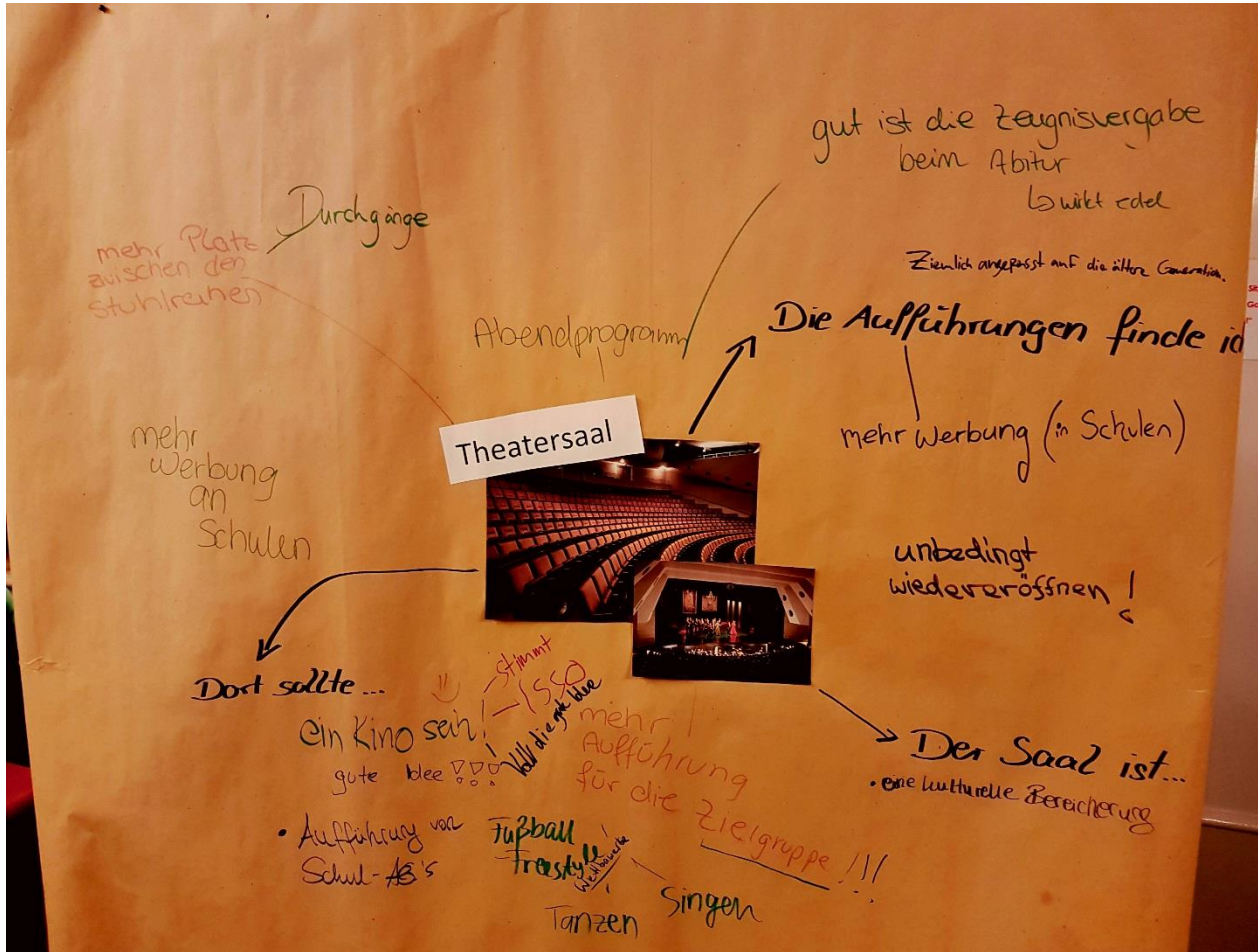 gut ist die Zeugnisvergabe
beim Abitur
↳ wirkt edel
Durchgänge
mehr Platz
zwischen den
Stuhlreihen
Ziemlich angepasst auf die ältere Generation.
Die Aufführungen finde ic
Abendprogramm
Theatersaal
mehr Werbung (in Schulen)
mehr
Werbung
an
Schulen
unbedingt
wiedereröffnen!
Dort sollte...
ein Kino sein!
- stimmt
- ISSO
Voll die gute Idee
gute Idee !!!
mehr
Aufführung
für die Zielgruppe!!!
Der Saal ist...
• eine kulturelle Bereicherung
• Aufführung von
Schul-AG's
Fußball
Freestyle
Wettbewerbe
Singen
Tanzen